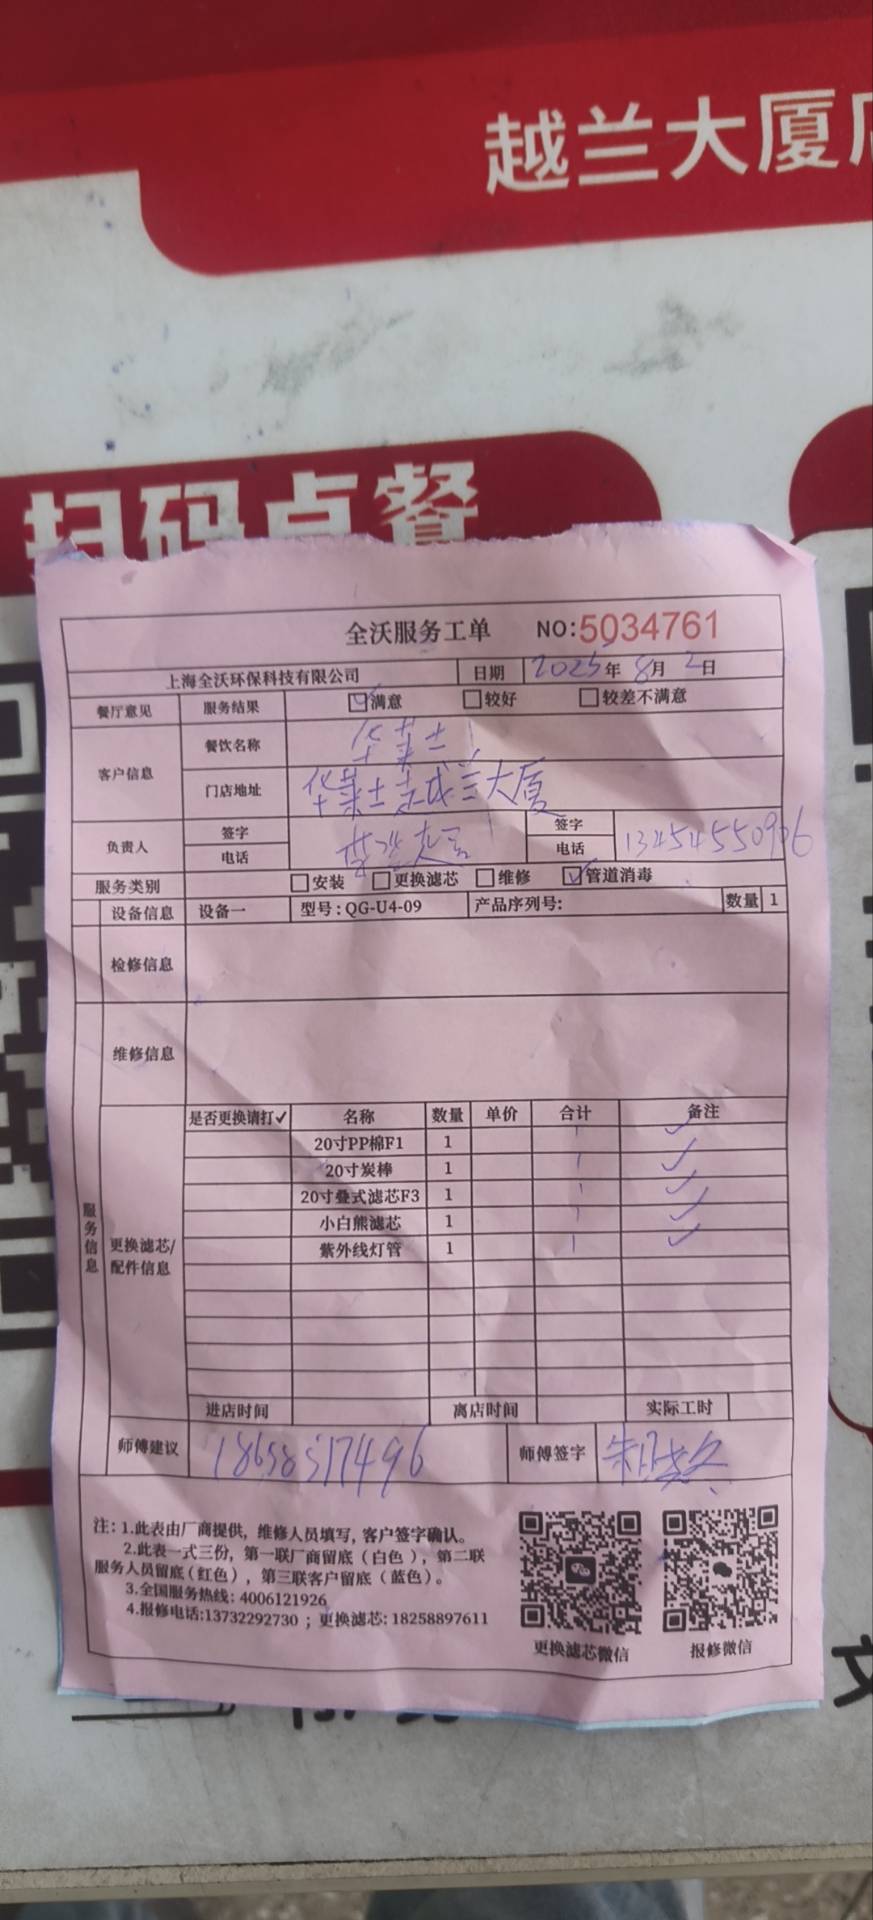 越兰大厦店
扫码点餐
全沃服务工单 NO:5034761
上海全沃环保科技有限公司 日期 2025年8月2日
餐厅意见 服务结果 ☑满意 □较好 □较差不满意
客户信息 餐饮名称 华莱士
门店地址 华莱士越兰大厦
负责人 签字 签字
电话 电话 13454550906
服务类别 □安装 □更换滤芯 □维修 ☑管道消毒
设备信息 设备一 型号:QG-U4-09 产品序列号: 数量 1
检修信息
维修信息
服务信息
更换滤芯/配件信息
是否更换请打✓ 名称 数量 单价 合计 备注
20寸PP棉F1 1 1 ✓
20寸炭棒 1 1 ✓
20寸叠式滤芯F3 1 1 ✓
小白熊滤芯 1 1 ✓
紫外线灯管 1 1 ✓
进店时间 离店时间 实际工时
师傅建议 18658517496 师傅签字
注: 1.此表由厂商提供，维修人员填写，客户签字确认。
2.此表一式三份，第一联厂商留底（白色），第二联
服务人员留底(红色)，第三联客户留底（蓝色）。
3.全国服务热线: 4006121926
4.报修电话:13732292730 ；更换滤芯: 18258897611
更换滤芯微信 报修微信